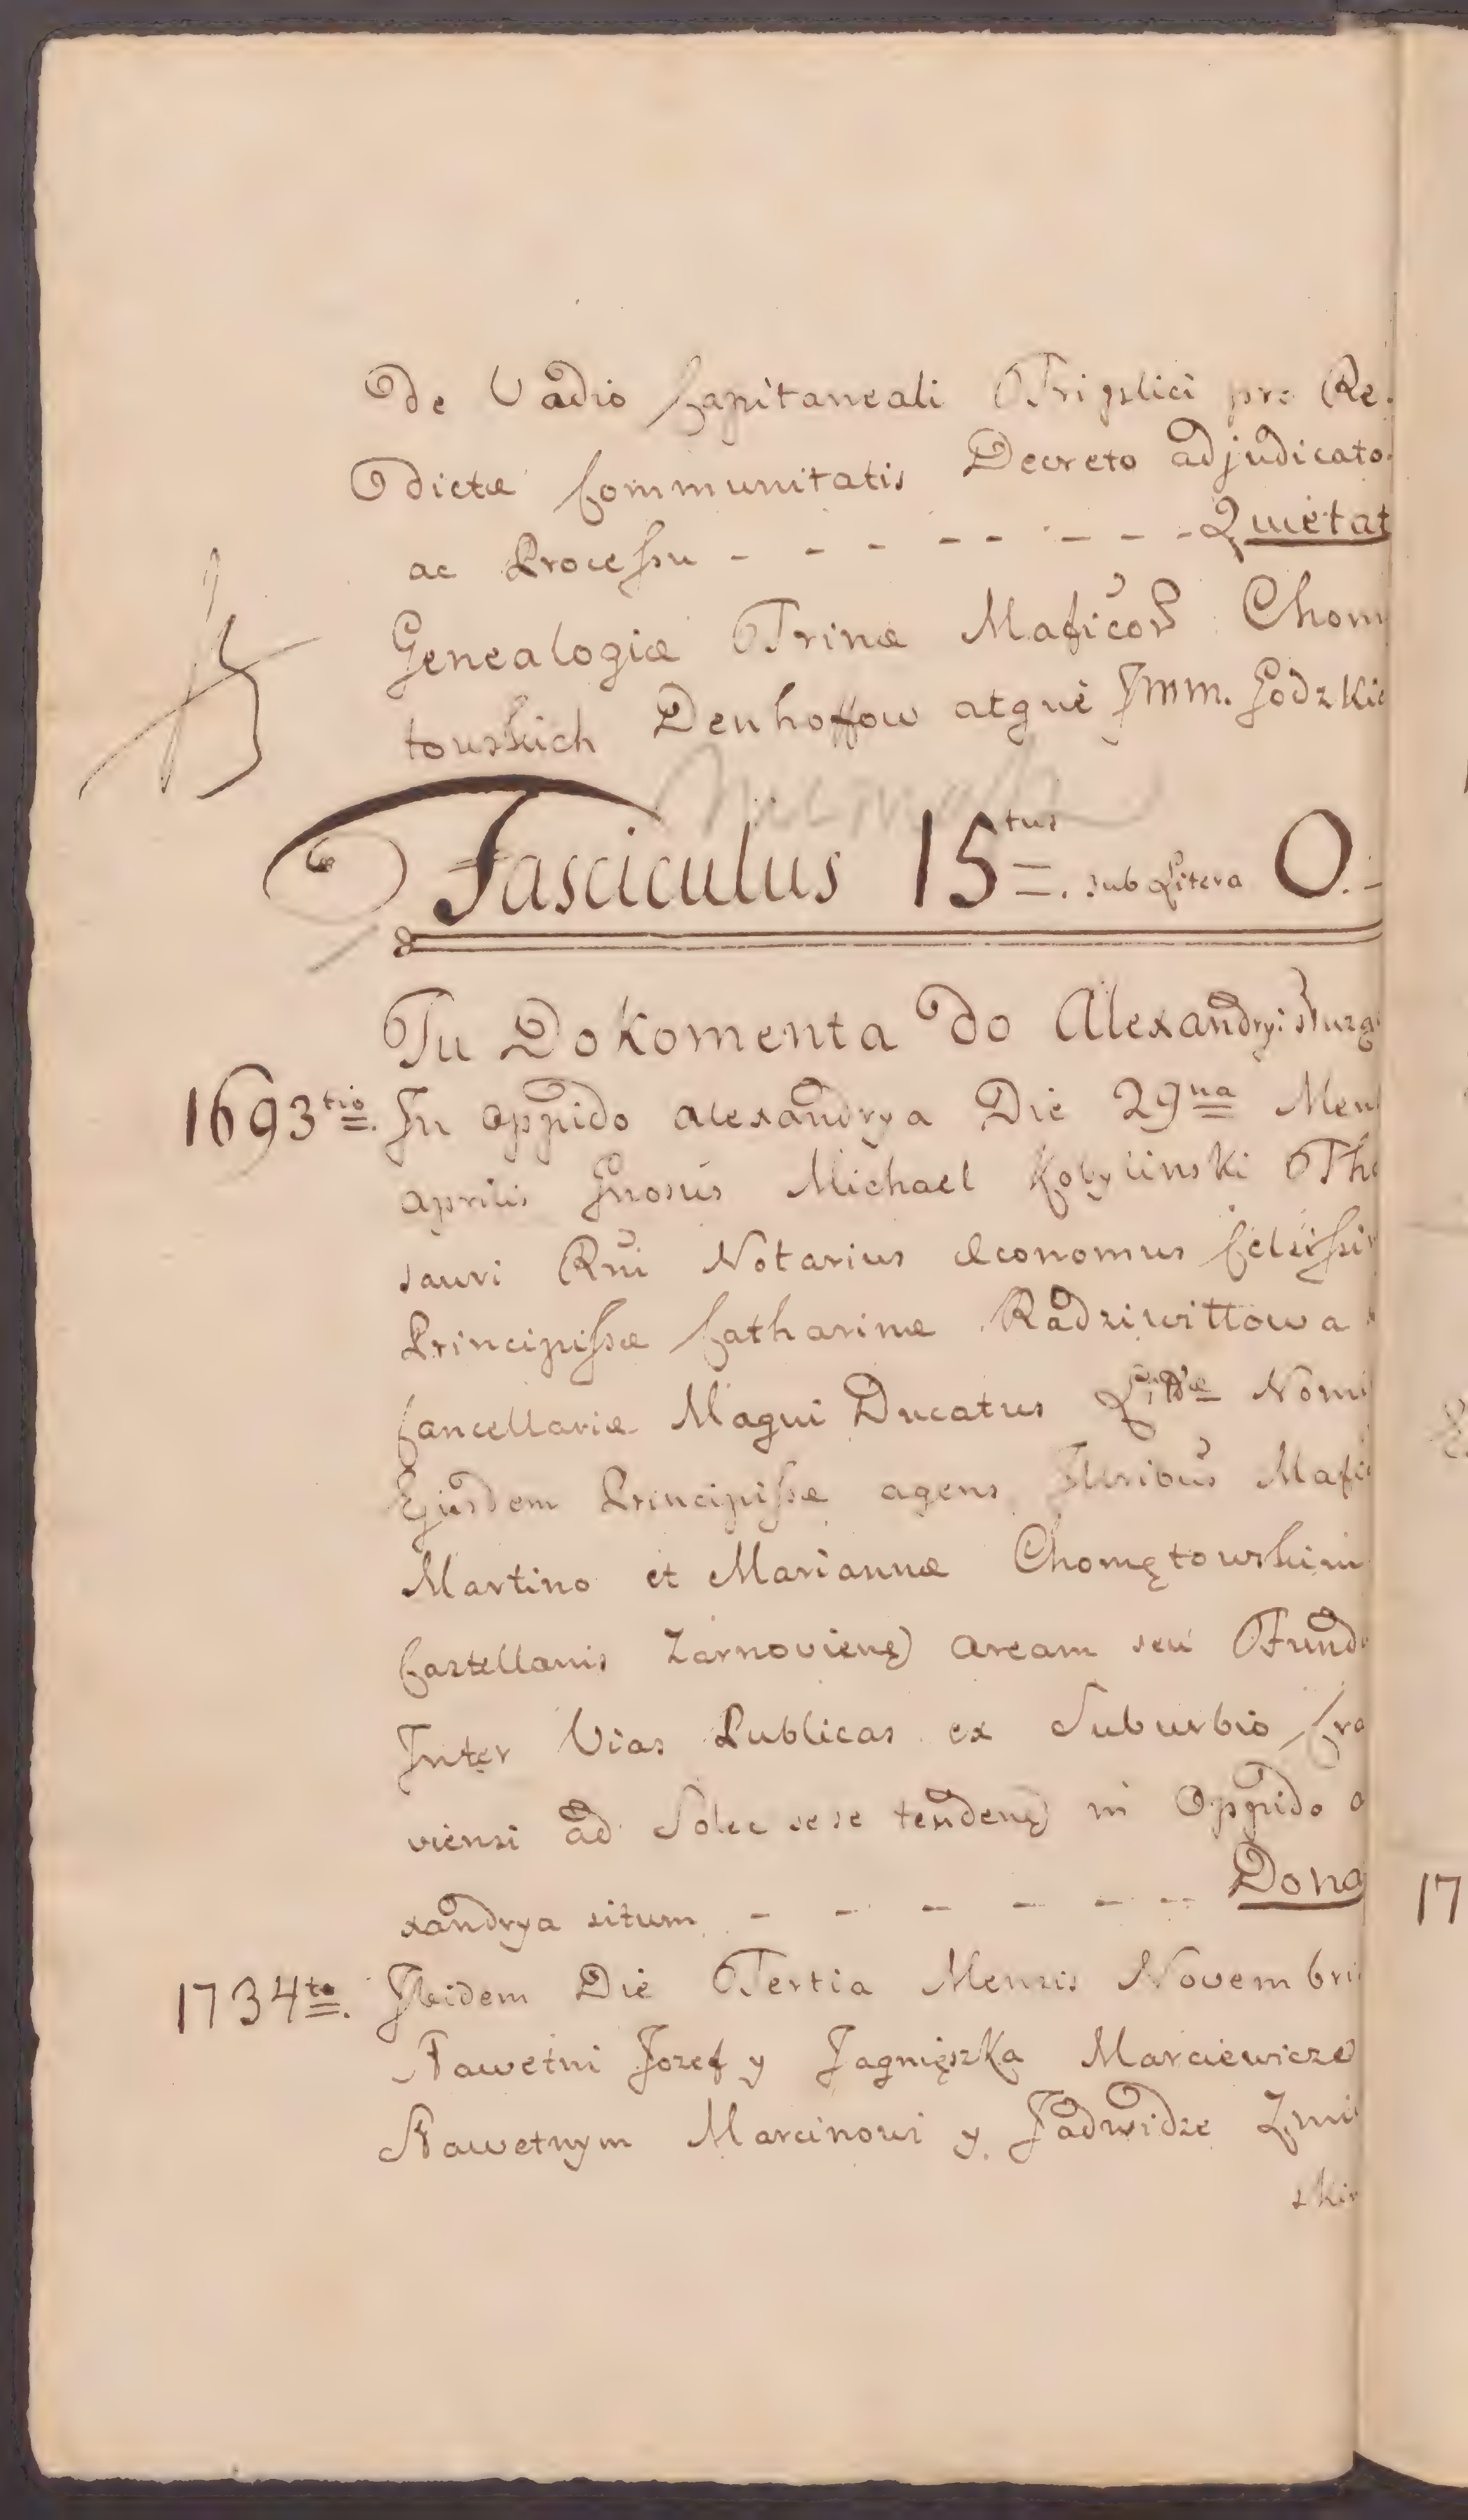 De Vadio Capitaneali Triplici pro Re
dictæ Communitatis Decreto adjudicato
ac Processu - - - - - - - - - Quietat
Genealogiæ Trinæ Maficor Chom
towskich Denhoffow atque Jmm. Godzkie
Fasciculus 15tus. sub Litera O.
Tu Dokomenta do Alexandryi
1693tio. In Oppido Alexandrya Die 29na Mens
Aprilis Gnosus Michael Kobylinski The
sauri Rni Notarius Œconomus Celsissim
Principissæ Catharinæ Radziwiłłowa
Cancellariæ Magni Ducatus Litt̃æ Nomi
Ejusdem Principissæ agens Illribus Mafic
Martino et Mariannæ Chomętowskim
Castellanis Zarnovieng Aream seu Fund
Inter Vias Publicas ex Suburbio Cra
viensi ad Solec sese tendeng in Oppido A
xandrya situm - - - - - - Dona
1734to. Ibidem Die Tertia Mensis Novembri
Sławetni Jozef y Jagnięszka Marciewicze
Sławetnym Marcinowi y Jadwidze Zmi
skim
17